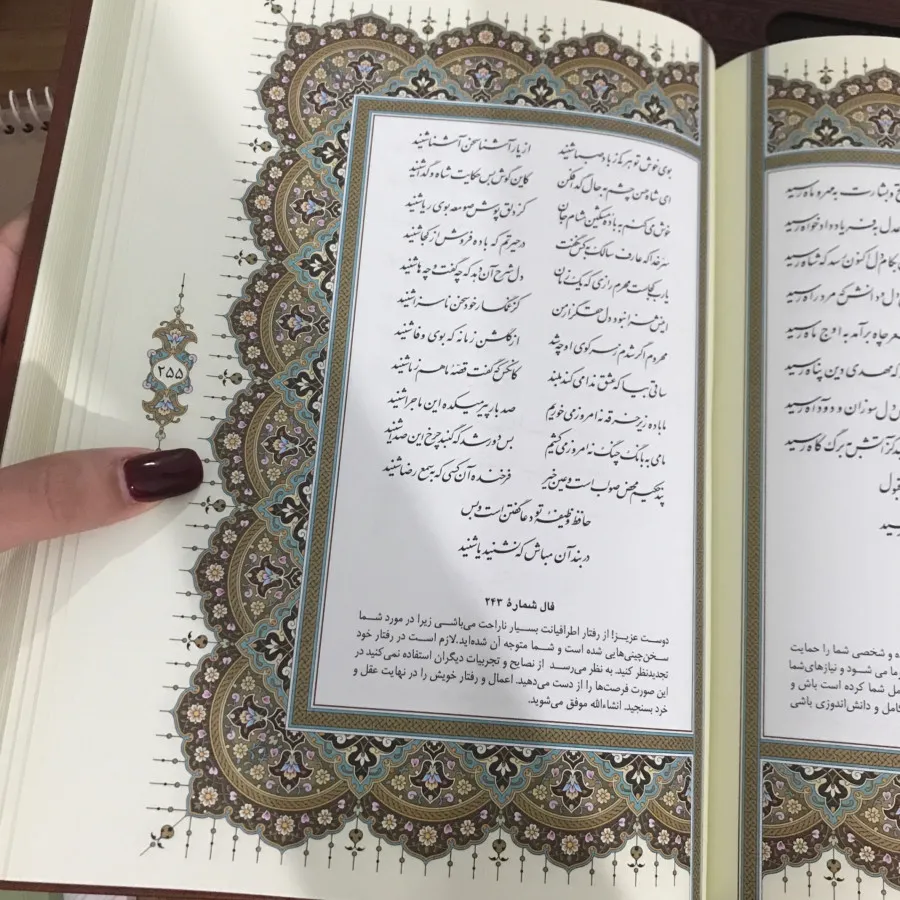 بوی خوش تو هر که ز باد صبا شنید از یار آشنا سخن آشنا شنید
ای شاه حسن چشم به حال گدا فکن کاین گوش بس حکایت شاه و گدا شنید
خوش می‌کنم به باده مشکین مشام جان کز دلق پوش صومعه بوی ریا شنید
سر خدا که عارف سالک به کس نگفت در حیرتم که باده فروش از کجا شنید
یا رب کجاست محرم رازی که یک زمان دل شرح آن دهد که چه گفت و چه‌ها شنید
اینش سزا نبود دل حق گزار من کز غمگسار خود سخن ناسزا شنید
محروم اگر شدم ز سر کوی او چه شد از گلشن زمانه که بوی وفا شنید
ساقی بیا که عشق ندا می‌کند بلند کانکس که گفت قصهٔ ما هم ز ما شنید
ما باده زیر خرقه نه امروز می‌خوریم صد بار پیر میکده این ماجرا شنید
ما می به بانگ چنگ نه امروز می‌کشیم بس دور شد که گنبد چرخ این صدا شنید
پند حکیم محض صواب است و عین خیر فرخنده آن کسی که به سمع رضا شنید
حافظ وظیفهٔ تو دعا گفتن است و بس
در بند آن مباش که نشنید یا شنید
فال شمارهٔ ۲۴۳
دوست عزیز! از رفتار اطرافیانت بسیار ناراحت می‌باشی زیرا در مورد شما
سخن‌چینی‌هایی شده است و شما متوجه آن شده‌اید. لازم است در رفتار خود
تجدیدنظر کنید. به نظر می‌رسد از نصایح و تجربیات دیگران استفاده نمی‌کنید در
این صورت فرصت‌ها را از دست می‌دهید. اعمال و رفتار خویش را در نهایت عقل و
خرد بسنجید. انشاءالله موفق می‌شوید.
۲۵۵
و بشارت به مهر و ماه رسید
به فریاد دادخواه رسید
اکنون رسد که شاه رسید
و دانش که مرد راه رسید
قعر چاه برآمد به اوج ماه رسید
که مهدی دین پناه رسید
دل سوزان و دود آه رسید
کز آتش به برگ کاه رسید
قبول
رسید
و شخصی شما را حمایت
می شود و نیازهای شما
شما کرده است باش و
کامل و دانش‌اندوزی باشی